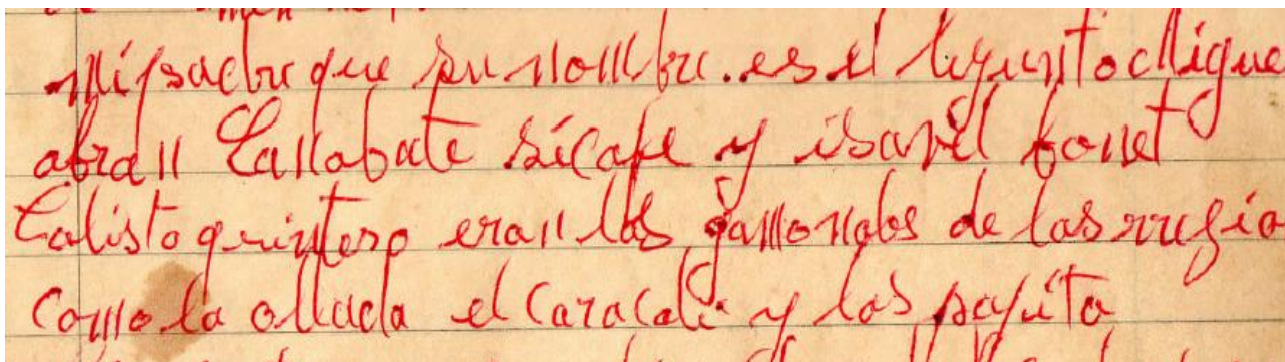 mi padre que su nombre. es el
abran Cannabate sicafe y isavel fonet
Calisto quintero eran los gamonales de las rregio
como la ollada el Caracali y las pajita